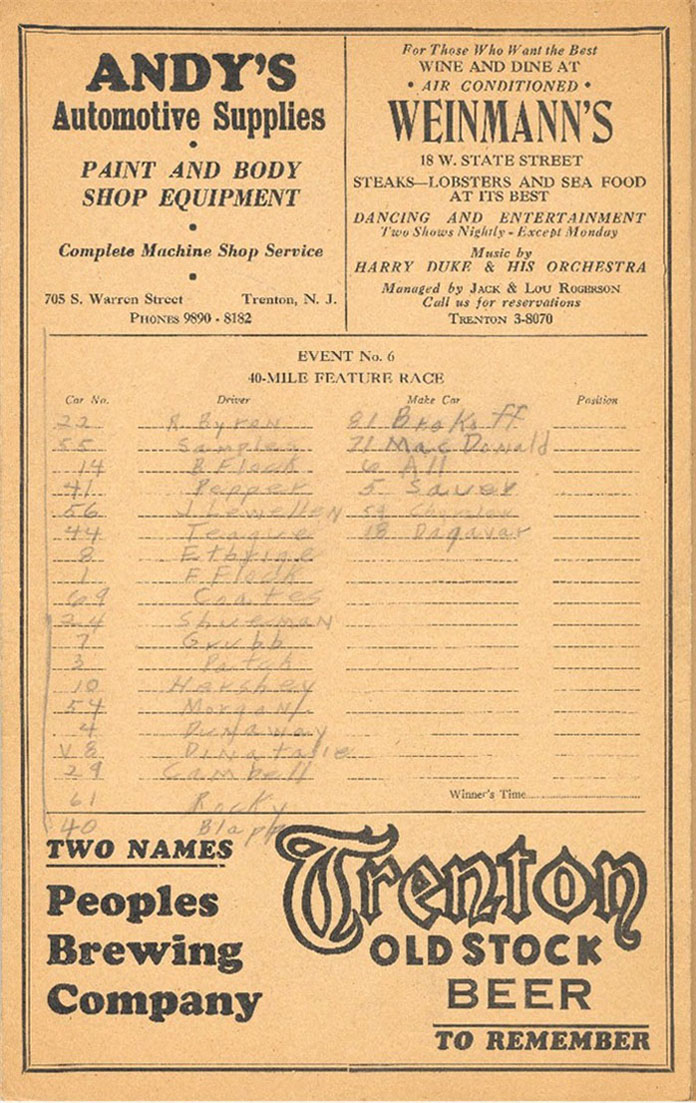 ANDY'S
Automotive Supplies
PAINT AND BODY
SHOP EQUIPMENT
Complete Machine Shop Service
705 S. Warren Street Trenton, N. J.
PHONES 9890 - 8182
For Those Who Want the Best
WINE AND DINE AT
• AIR CONDITIONED •
WEINMANN'S
18 W. STATE STREET
STEAKS—LOBSTERS AND SEA FOOD
AT ITS BEST
DANCING AND ENTERTAINMENT
Two Shows Nightly - Except Monday
Music by
HARRY DUKE & HIS ORCHESTRA
Managed by JACK & LOU ROGERSON
Call us for reservations
TRENTON 3-8070
EVENT No. 6
40-MILE FEATURE RACE
Car No. Driver Make Car Position
22 R. Byron 81 Brokoff
55 Samples 71 MacDonald
14 B Flock 6 All
41 Pepper 5 Sauer
56 J. Lewellen 59
44 Teague 18 Dagavar
8 Ethrige
1 F Flock
69 Coates
34 Shueman
7 Grubb
3 Patch
10 Hershey
54 Morgan
4 Dunaway
V8 Dinatale
29 Cambell
Winner's Time
61 Rocky
40 Blapp
TWO NAMES
Peoples
Brewing
Company
Trenton
OLD STOCK
BEER
TO REMEMBER